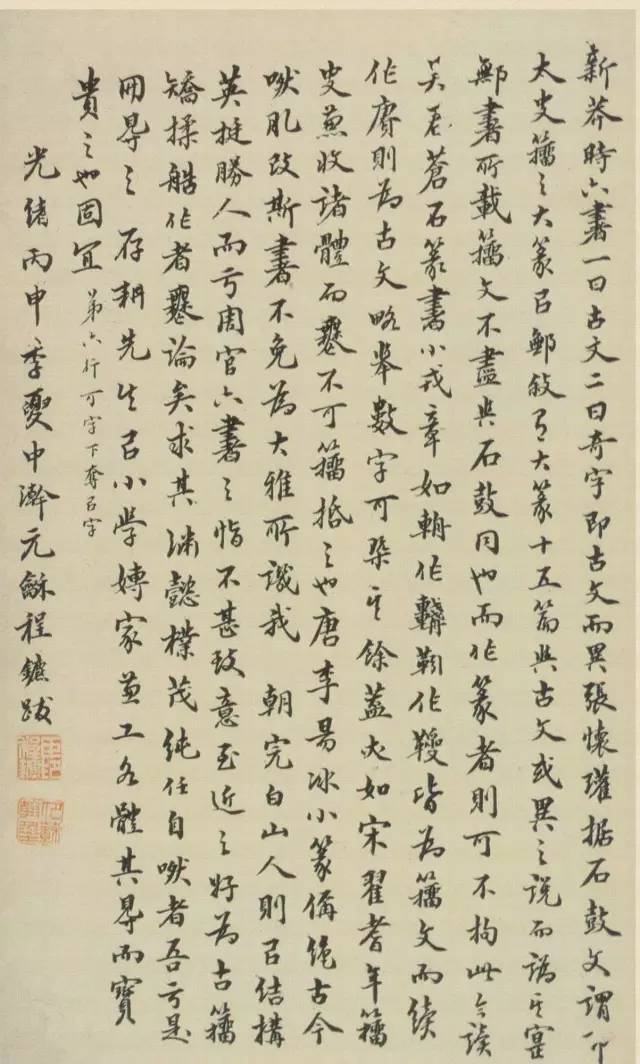 新莽時六書一曰古文二曰奇字即古文而異張懷瓘据石鼓文謂即
太史籒之大篆㠯鄦敘有大篆十五篇與古文或異之說而譌其寔
鄦書所載籒文不盡與石鼓同也而作篆者則可不拘此今讀
吴君蒼石篆書小戎章如輈作 靷作 皆為籒文而續
作賡則為古文略舉數字可槩其餘蓋亦如宋翟耆年籒
史兼收諸體而要不可籒抵之也唐李昜冰小篆偁絶古今
然肊改斯書不免為大雅所譏我 朝完白山人則㠯結搆
英挺勝人而于周官六書之恉不甚致意至近之好為古籒
矯揉 作者要無論矣求其淵懿樸茂純任自然者吾于是
冊㝵之 存耕先生㠯小學專家兼工各體其㝵而寶
貴之也固宜 第六行可字下奪㠯字
光緒丙申季夏中澣元龢程鑣跋